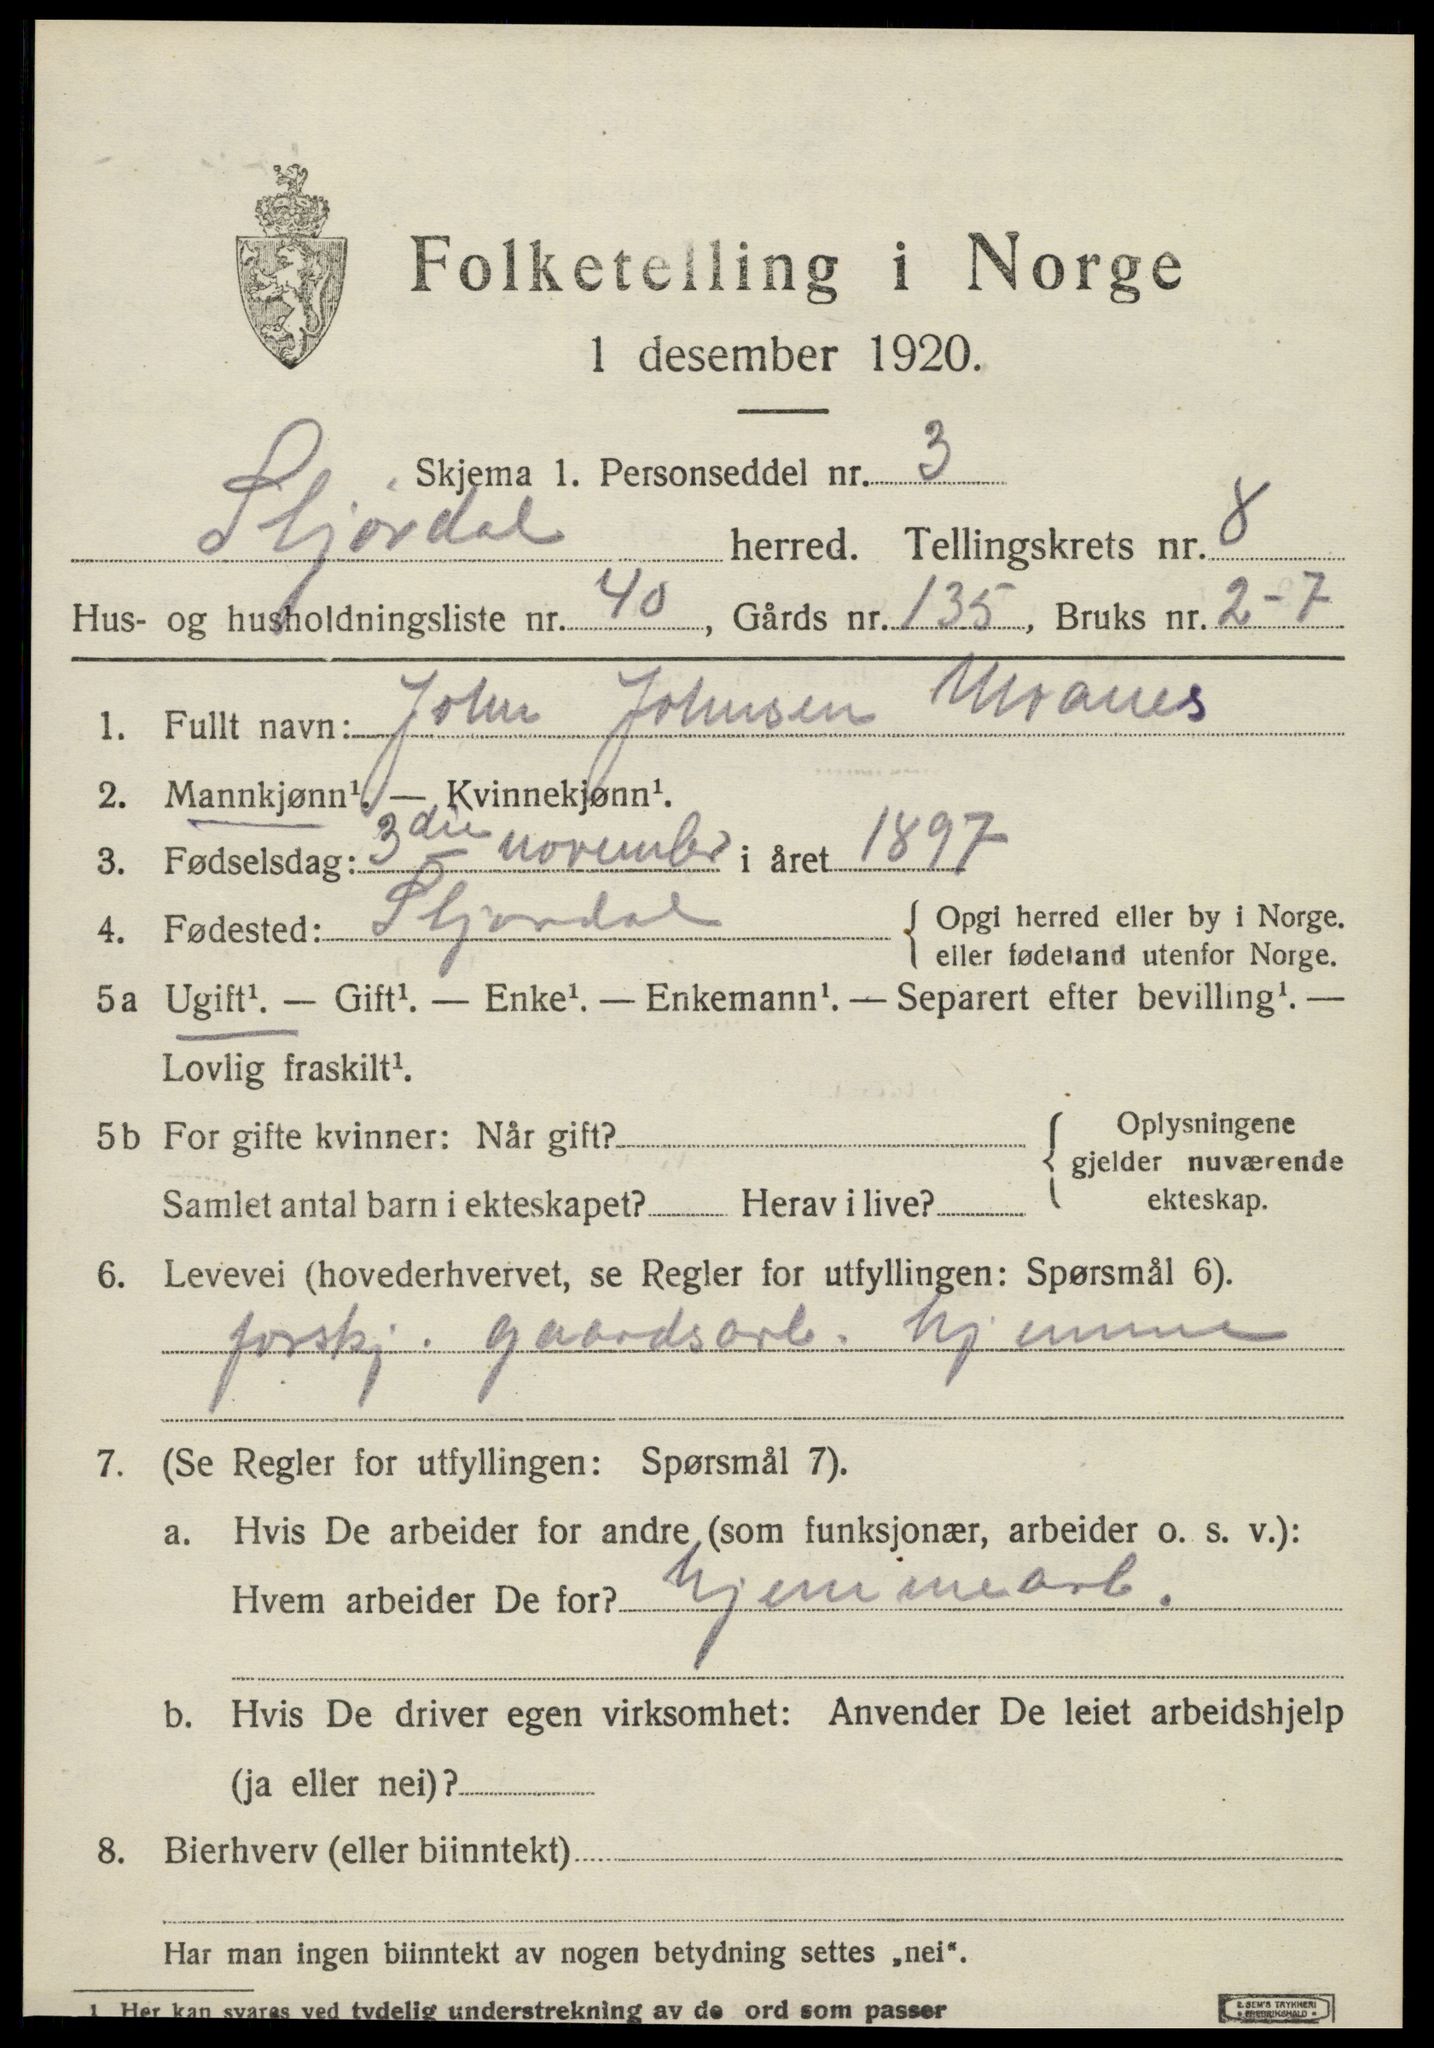 Folketelling i Norge
1 desember 1920.
Skjema 1. Personseddel nr. 3
Stjørdal herred. Tellingskrets nr. 8
Hus- og husholdningsliste nr. 40, Gårds nr. 135, Bruks nr. 2-7
1. Fullt navn: John Johnsen Moanes
2. Mannkjønn¹. — Kvinnekjønn¹.
3. Fødselsdag: 3die november i året 1897
4. Fødested: Stjørdal { Opgi herred eller by i Norge.
eller fødeland utenfor Norge.
5a Ugift¹. — Gift¹. — Enke¹. — Enkemann¹. — Separert efter bevilling¹. —
Lovlig fraskilt¹.
5b For gifte kvinner: Når gift? { Oplysningene
gjelder nuværende
Samlet antal barn i ekteskapet? Herav i live? ekteskap.
6. Levevei (hovederhvervet, se Regler for utfyllingen: Spørsmål 6).
forskj. gaardsarb. hjemme
7. (Se Regler for utfyllingen: Spørsmål 7).
a. Hvis De arbeider for andre (som funksjonær, arbeider o. s. v.):
Hvem arbeider De for? hjemmearb.
b. Hvis De driver egen virksomhet: Anvender De leiet arbeidshjelp
(ja eller nei)?
8. Bierhverv (eller biinntekt)
Har man ingen biinntekt av nogen betydning settes „nei“.
1 Her kan svares ved tydelig understrekning av de ord som passer
E. SEM'S TRYKKERI
FREDRIKSHALD